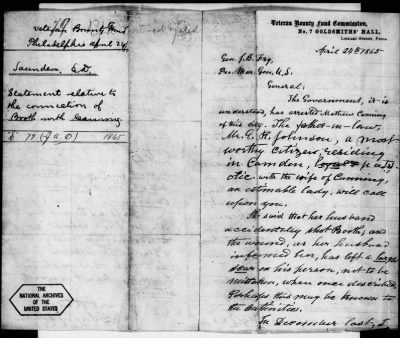 Veteran Bounty Fund
Philadelphia April 24/
Saunders, E.D.
Statement relative to
the connection of
Booth with Canning
"S" 79 (J.A.O) 1865
THE
NATIONAL ARCHIVES
OF THE
UNITED STATES
Veteran Bounty Fund Commission,
No. 7 GOLDSMITHS' HALL,
LIBRARY STREET, PHILA.
April 24th 1865
Gen. J.B. Fry,
Pro. Mar. Gen. U.S.
General:
The Government, it is
understood, has arrested Mathew Canning
of this city. The father-in-law,
Mr. E. K. Johnson, a most
worthy citizen, residing
in Camden, loyal & patri-
otic with the wife of Canning,
an estimable lady, will call
upon you.
She said that her husband
accidentally shot Booth; and
the wound, as her husband
informed her, has left a large
scar on his person, not to be
mistaken, when once described.
Perhaps this may be known to
the authorities.
In December last, I